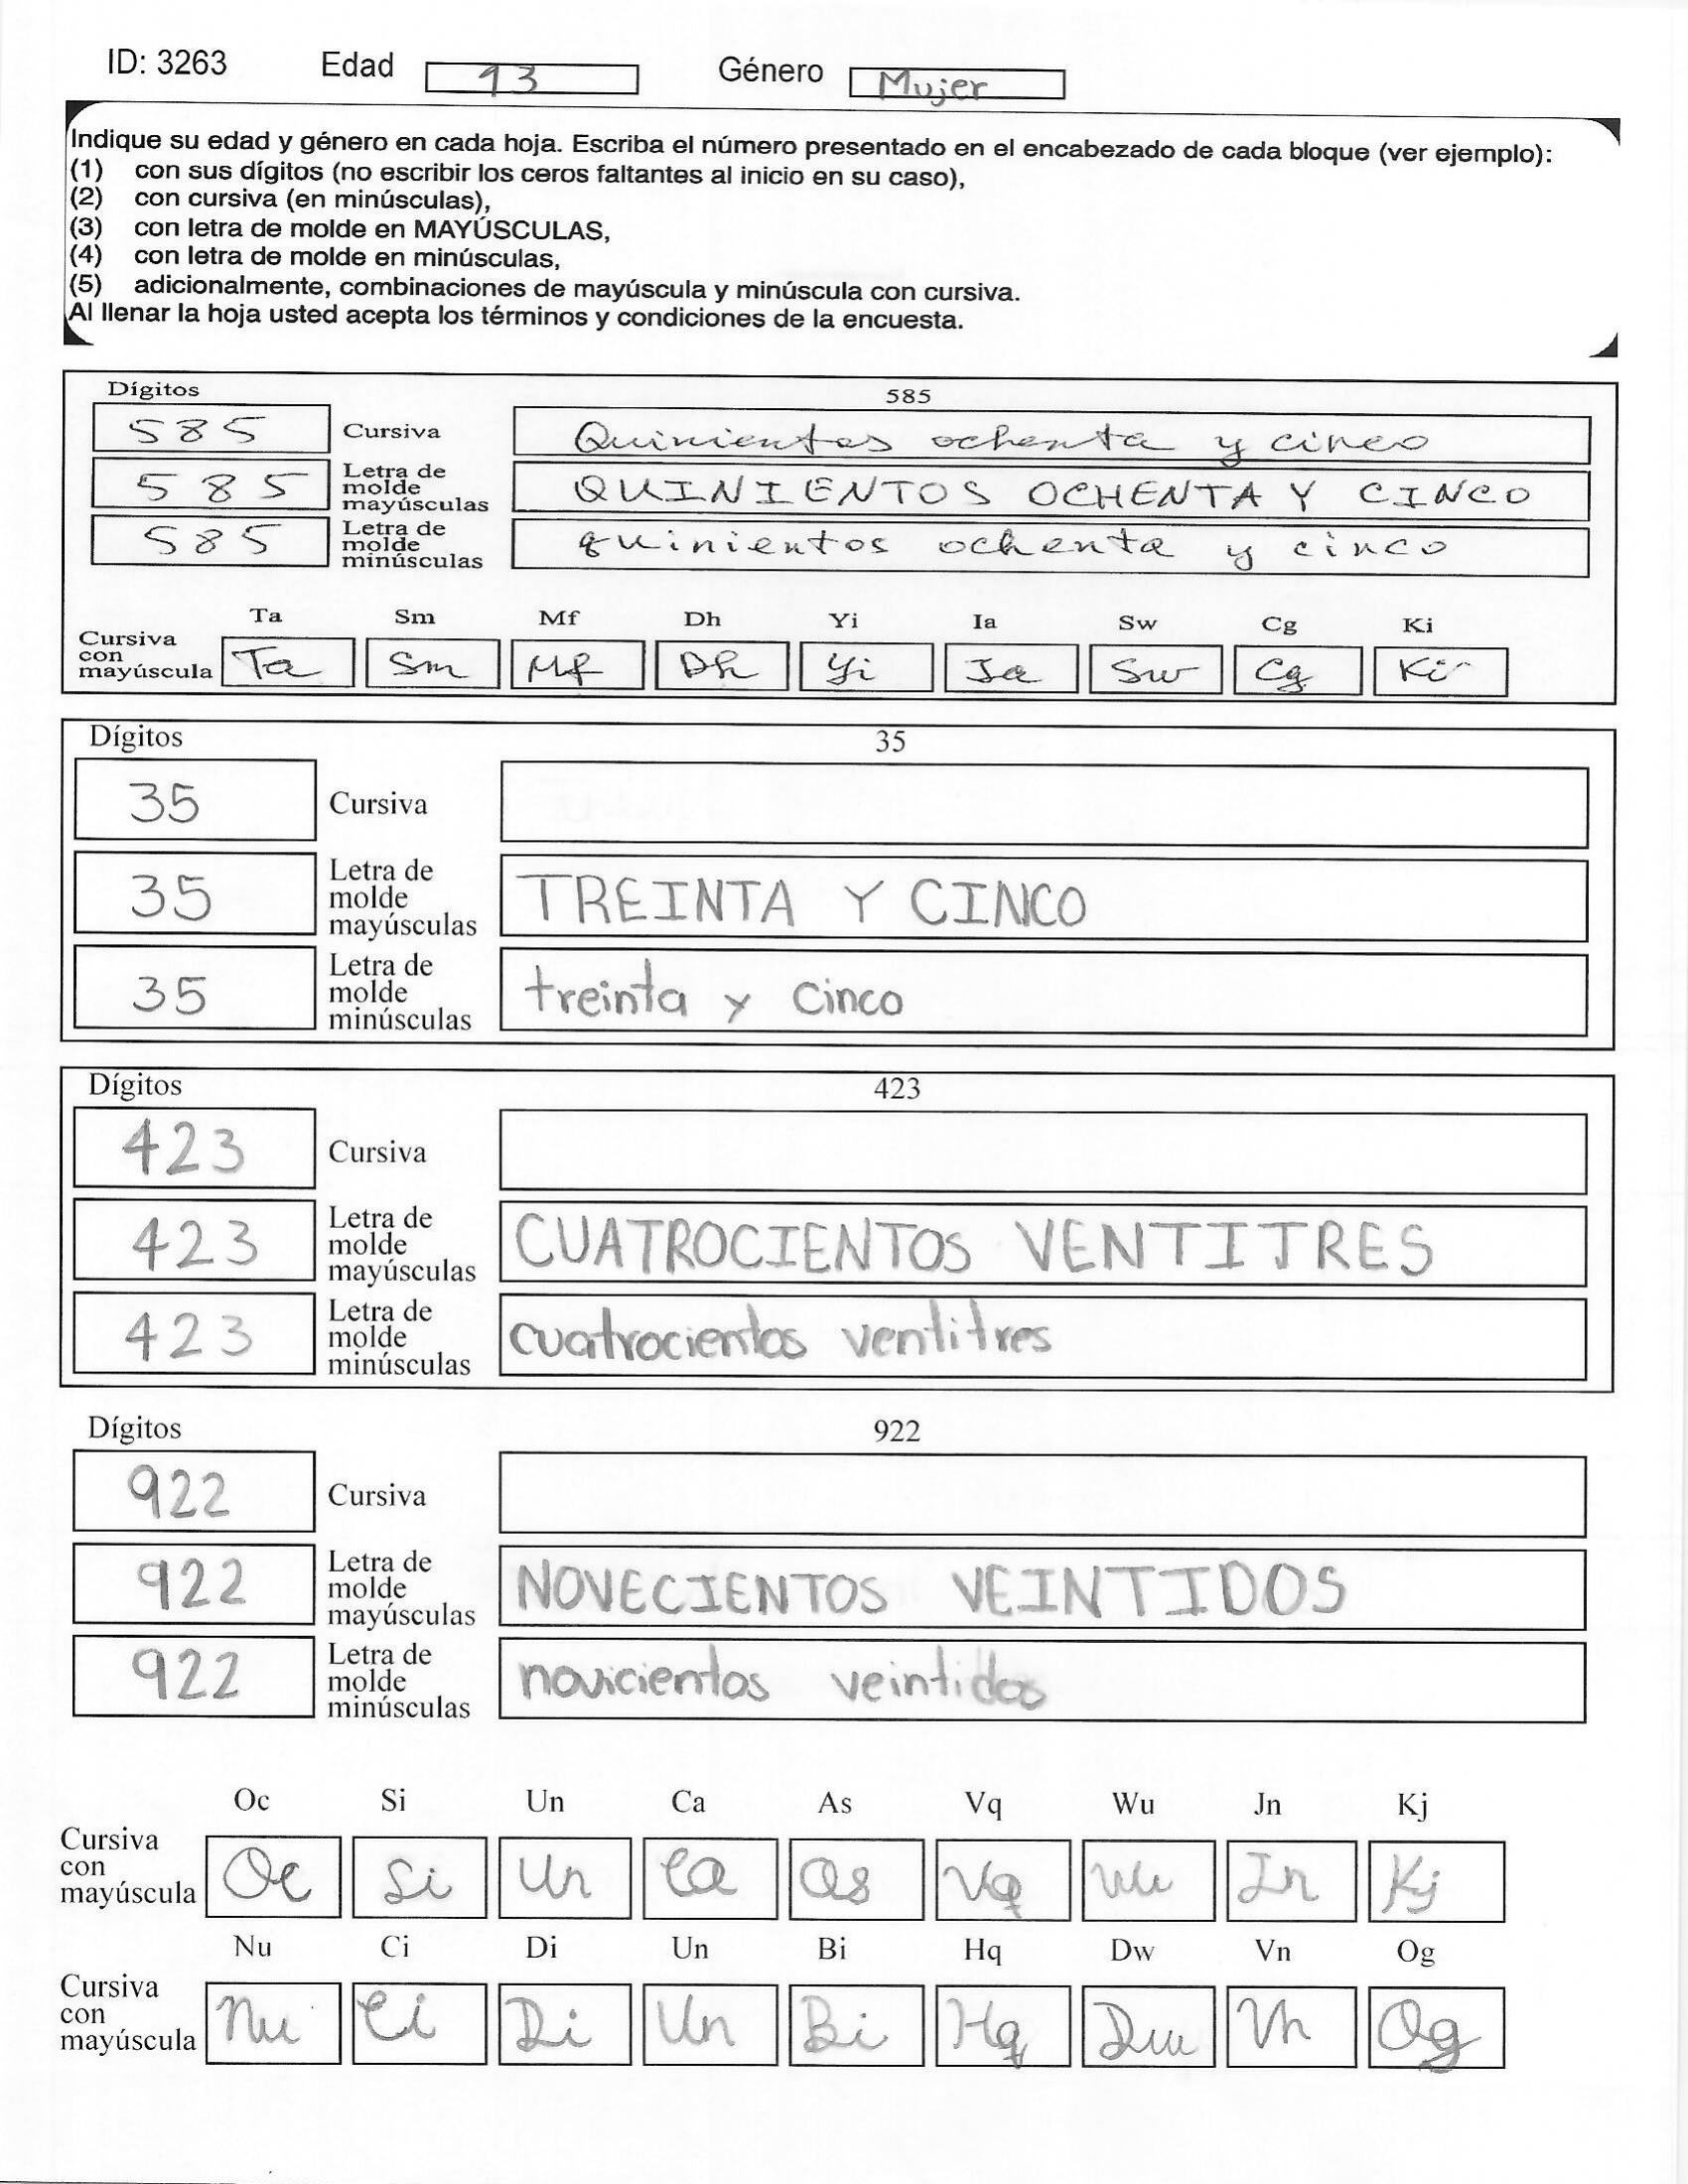 ID: 3263 Edad 13 Género Mujer
Indique su edad y género en cada hoja. Escriba el número presentado en el encabezado de cada bloque (ver ejemplo):
(1) con sus dígitos (no escribir los ceros faltantes al inicio en su caso),
(2) con cursiva (en minúsculas),
(3) con letra de molde en MAYÚSCULAS,
(4) con letra de molde en minúsculas,
(5) adicionalmente, combinaciones de mayúscula y minúscula con cursiva.
Al llenar la hoja usted acepta los términos y condiciones de la encuesta.
Dígitos 585
585 Cursiva Quinientos ochenta y cinco
585 Letra de molde mayúsculas QUINIENTOS OCHENTA Y CINCO
585 Letra de molde minúsculas quinientos ochenta y cinco
Ta Sm Mf Dh Yi Ia Sw Cg Ki
Cursiva con mayúscula Ta Sm Mf Dh Yi Ia Sw Cg Ki
Dígitos 35
35 Cursiva
35 Letra de molde mayúsculas TREINTA Y CINCO
35 Letra de molde minúsculas treinta y cinco
Dígitos 423
423 Cursiva
423 Letra de molde mayúsculas CUATROCIENTOS VENTITRES
423 Letra de molde minúsculas cuatrocientos ventitres
Dígitos 922
922 Cursiva
922 Letra de molde mayúsculas NOVECIENTOS VEINTIDOS
922 Letra de molde minúsculas novicientos veintidos
Oc Si Un Ca As Vq Wu Jn Kj
Cursiva con mayúscula Oc Si Un Ca As Vq Wu Jn Kj
Nu Ci Di Un Bi Hq Dw Vn Og
Cursiva con mayúscula Nu Ci Di Un Bi Hq Dw Vn Og